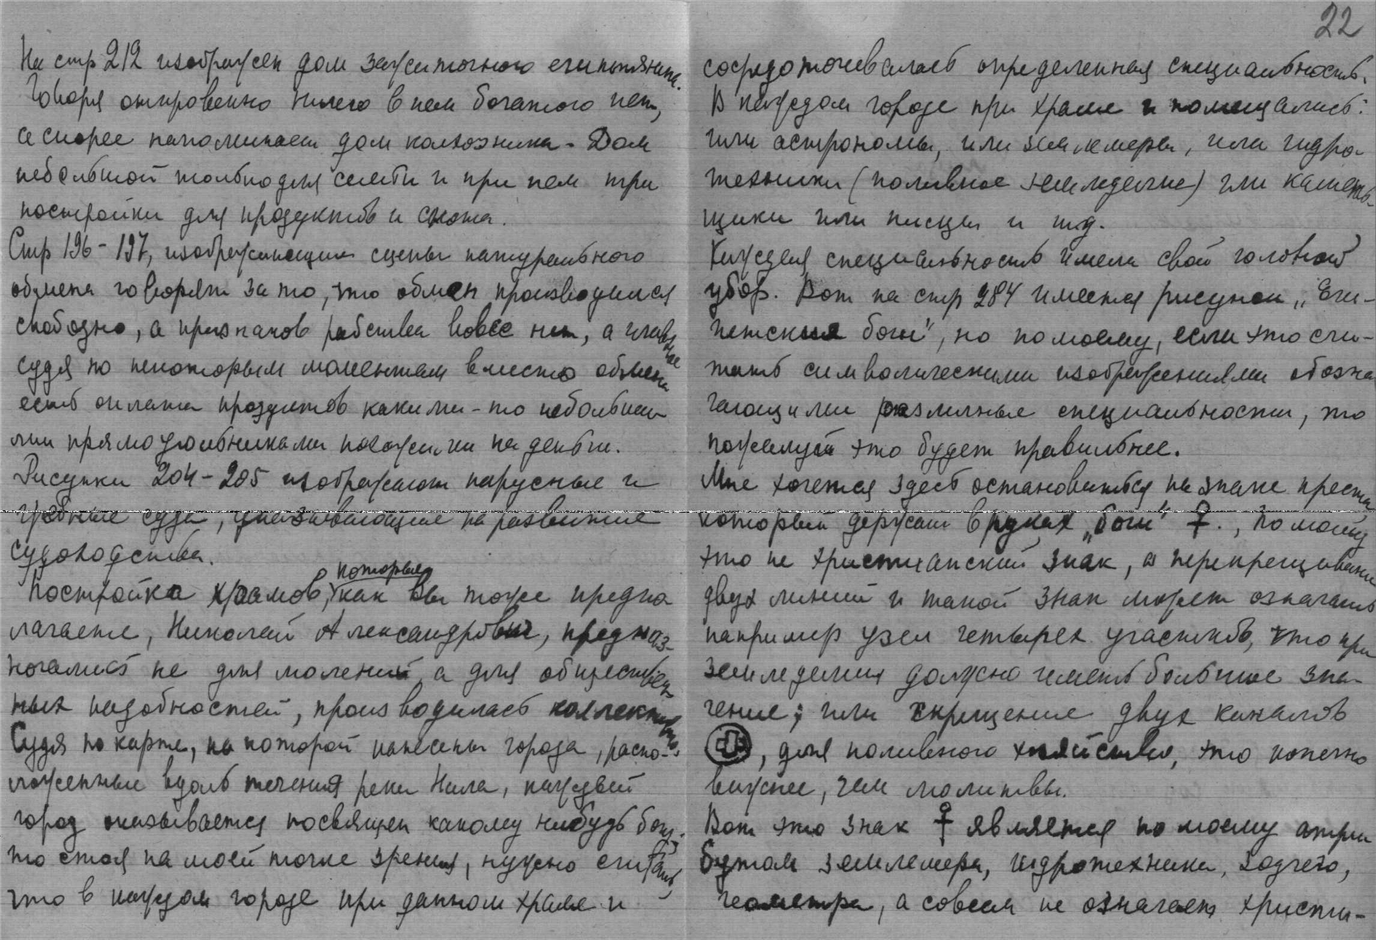 22
На стр 212 изображен дом зажиточного египтянина.
Говоря откровенно ничего в нем богатого нет,
а скорее напоминает дом колхозника. Дом
небольшой только для семьи и при нем три
постройки для продуктов и скота.
Стр 196-197, изображающие сцены натурального
обмена говорят за то, что обмен производился
свободно, а признаков рабства вовсе нет, а главное
судя по некоторым моментам вместо обмена
есть оплата продуктов какими-то небольши-
ми прямоугольниками похожими на деньги.
Рисунки 204-205 изображают парусные и
гребные суда, указывающие на развитие
судоходства.
которые
Постройка храмов, как Вы тоже предпо
лагаете, Николай Александрович, предназ-
ночались не для молений, а для обществен-
ных надобностей, производилась коллективно.
Судя по карте, на которой нанесены города, распо-
ложенные вдоль течения реки Нила, каждый
город оказывается посвящен какому нибудь богу.
то стоя на моей точке зрения, нужно считать,
что в каждом городе при данном храме и
сосредоточивалась определенная специальность.
В каждом городе при храме и помещались:
или астрономы, или землемеры, или гидро-
техники (поливное земледелие) или каменьщики
или писцы и т.д.
Каждая специальность имела свой головной
убор. Вот на стр 284 имеется рисунок „Еги-
петския боги", но по моему, если это счи-
тать символическими изображениями обозна
чающими различные специальности, то
пожалуй это будет правильнее.
Мне хочется здесь остановиться на знаке креста
который держат в руках „боги" ♀., По моему
это не христианский знак, а перекрещивание
двух линий и такой знак может означать
например узел четырех участков, что при
земледелии должно иметь большое зна-
чение, или скрещение двух каналов
, для поливного хозяйства, это конечно
важнее, чем молитвы.
Вот это знак ♀ является по моему атри
бутом землемера, гидротехника, зодчего,
геометра, а совсем не означает христи-